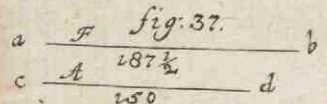 fig: 37.
a F b
187½
c A d
150